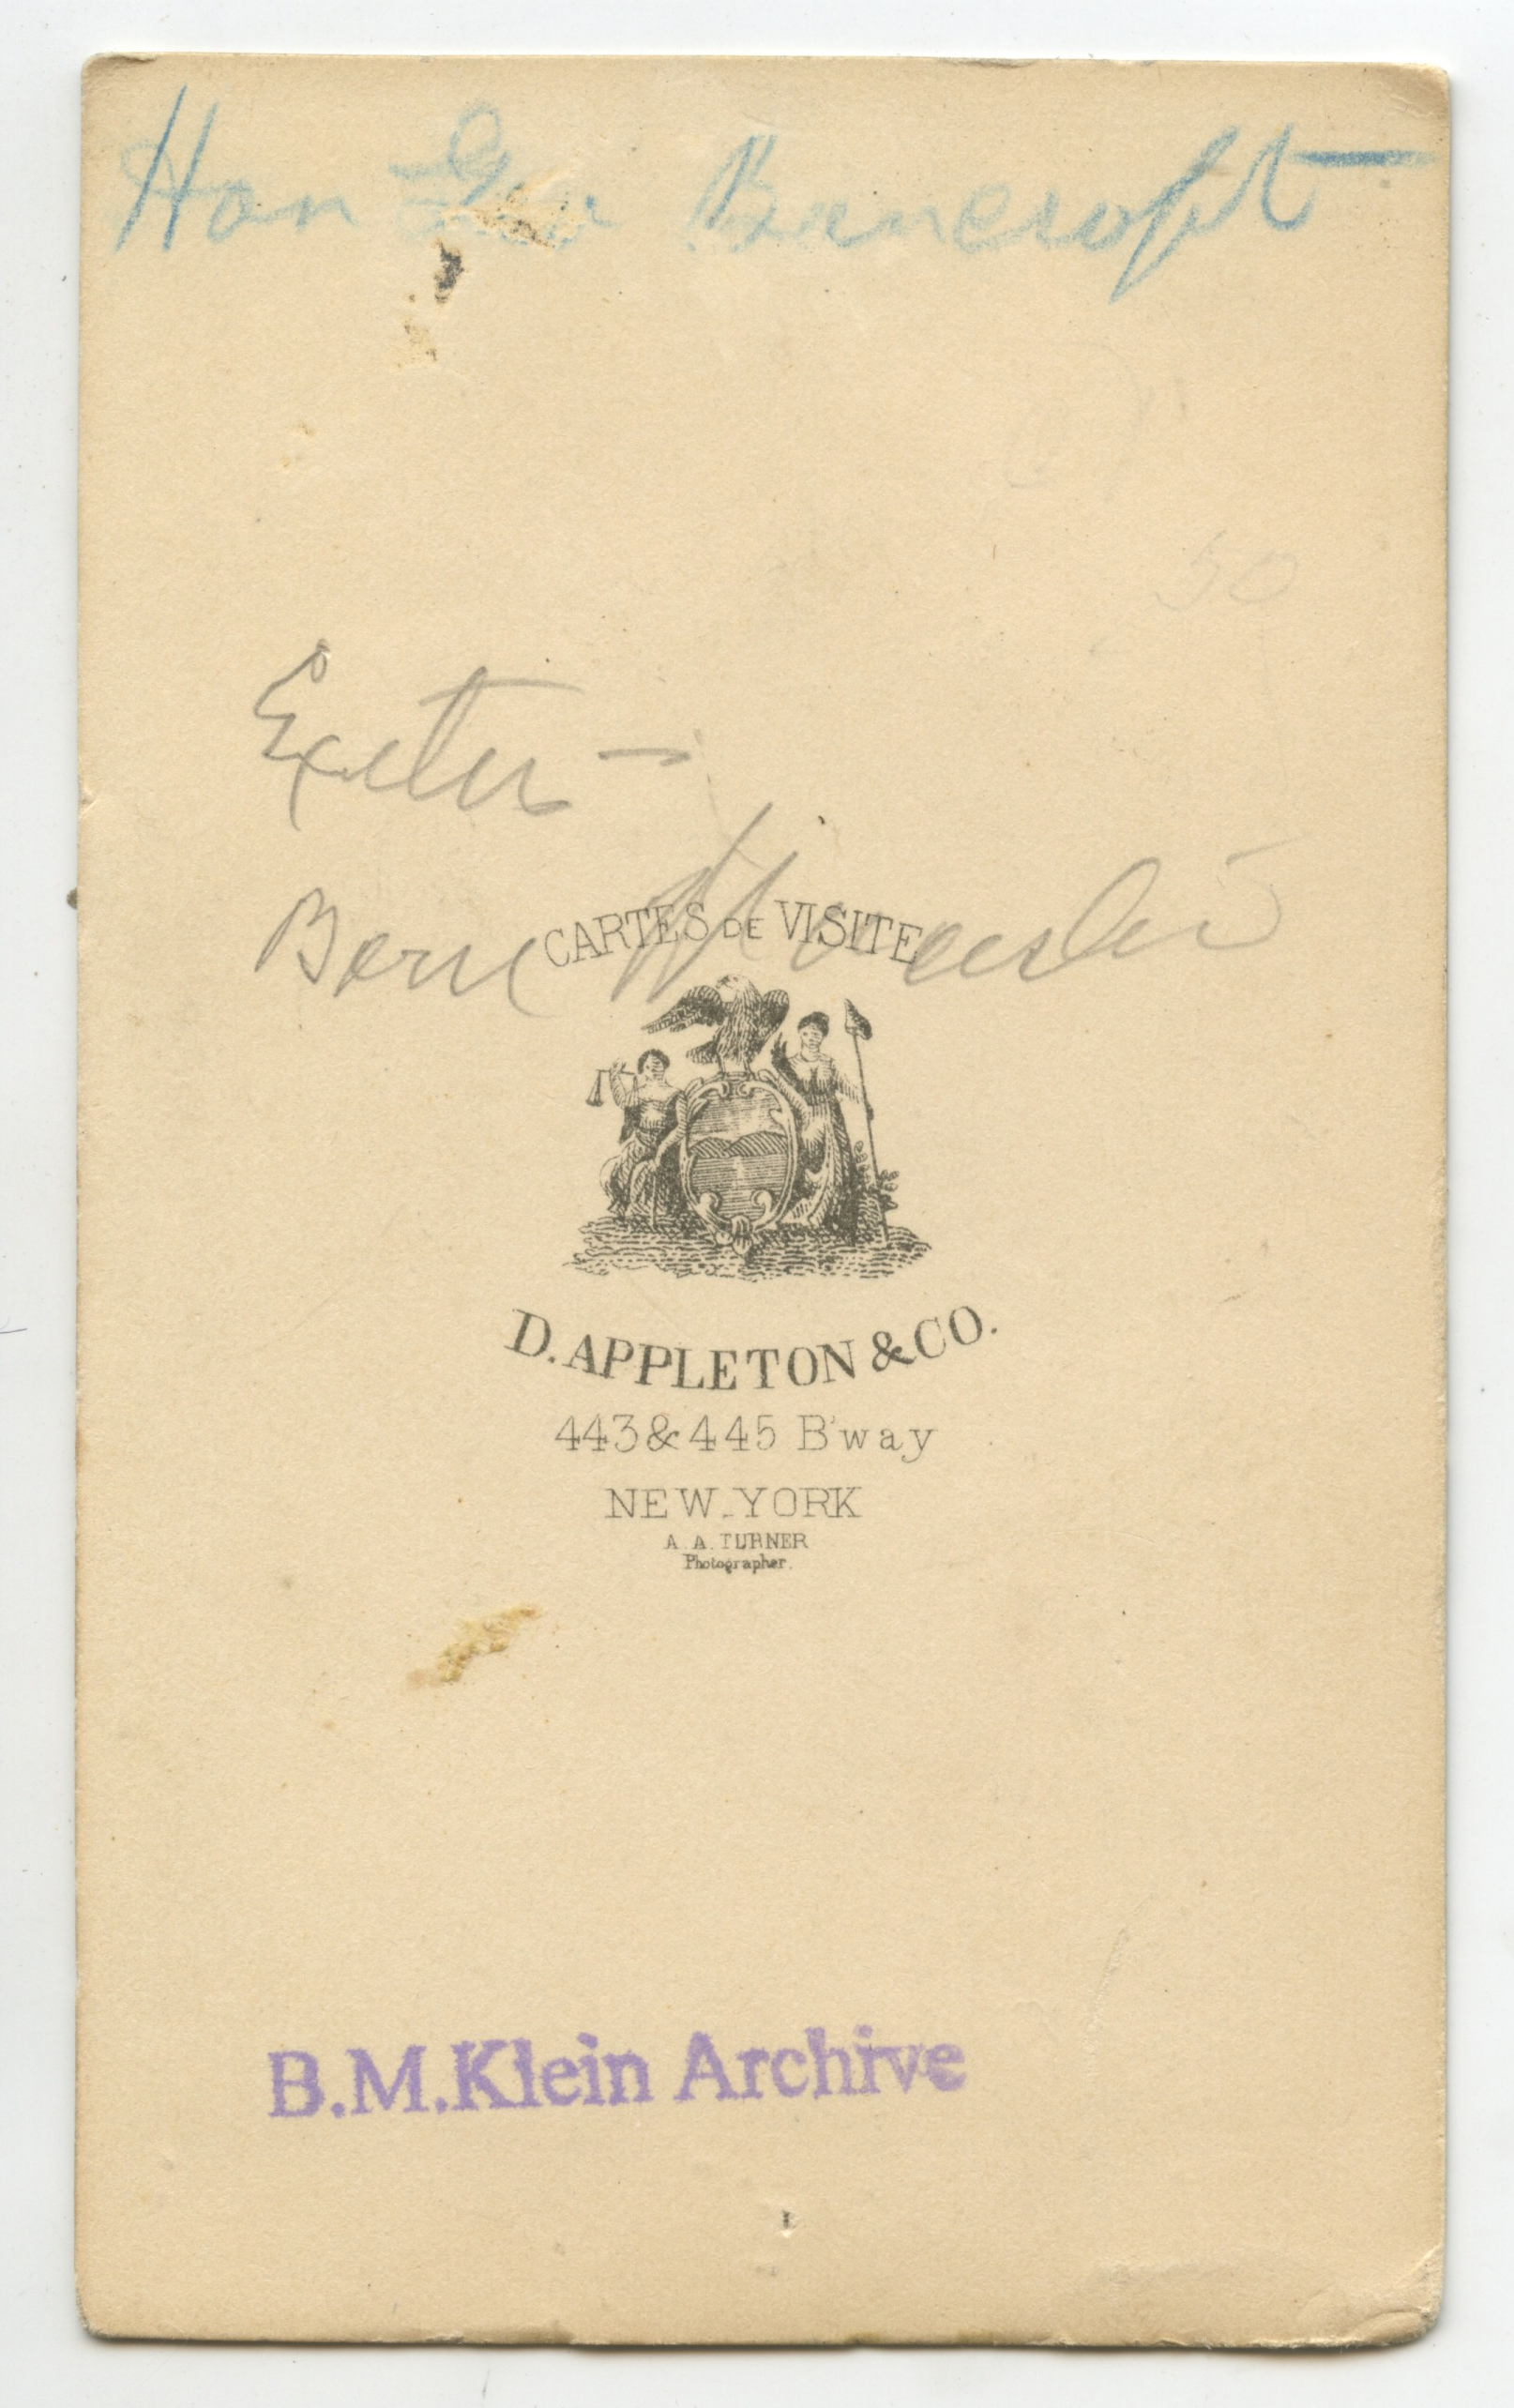 Hon Geo Bancroft
50
Exeter -
Born Worcester
CARTES DE VISITE
D. APPLETON & CO.
443 & 445 B'way
NEW-YORK
A. A. TURNER
Photographer.
B.M.Klein Archive